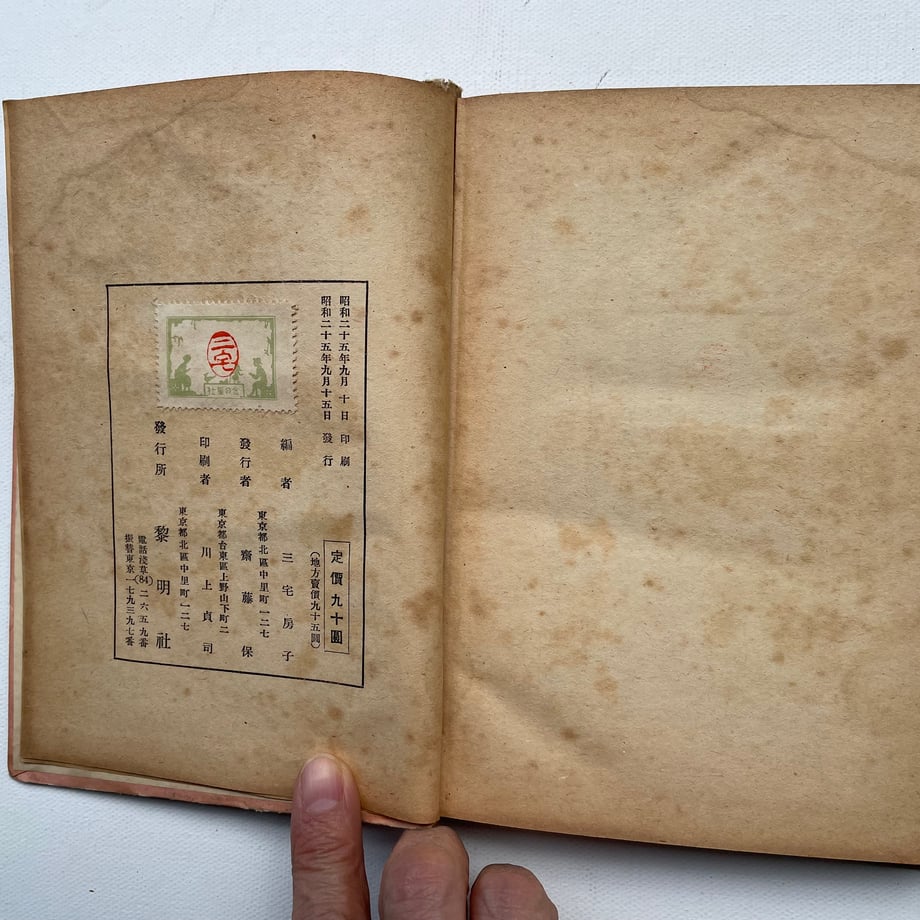 昭和二十五年九月 十 日 印 刷
昭和二十五年九月十五日 發 行
定價九十圓
(地方賣價九十五圓)
編者 三宅房子
東京都北區中里町一二七
發行者 齋藤保
東京都台東區上野山下町二
印刷者 川上貞司
東京都北區中里町一二七
發行所 黎明社
電話淺草(84)二六五九番
振替東京一七九三九七番
三宅